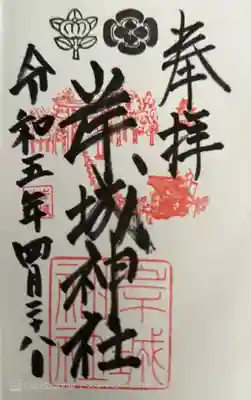 奉拝
岸城神社
令和五年四月二十八日
岸城
神社